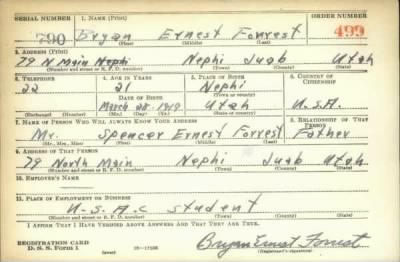 SERIAL NUMBER 1. NAME (Print) ORDER NUMBER
790 Bryan Ernest Forrest 499
(First) (Middle) (Last)
2. ADDRESS (Print)
79 N Main Nephi Nephi Juab Utah
(Number and street or R. F. D. number) (Town) (County) (State)
3. TELEPHONE 4. AGE IN YEARS 5. PLACE OF BIRTH 6. COUNTRY OF CITIZENSHIP
22 21 Nephi
DATE OF BIRTH (Town or county)
March 28 1919 Utah U.S.A.
(Exchange) (Number) (Mo.) (Day) (Yr.) (State or country)
7. NAME OF PERSON WHO WILL ALWAYS KNOW YOUR ADDRESS 8. RELATIONSHIP OF THAT PERSON
Mr. Spencer Ernest Forrest Father
(Mr., Mrs., Miss) (First) (Middle) (Last)
9. ADDRESS OF THAT PERSON
79 North Main Nephi Juab Utah
(Number and street or R. F. D. number) (Town) (County) (State)
10. EMPLOYER'S NAME
11. PLACE OF EMPLOYMENT OR BUSINESS
U.S.A.C student
(Number and street or R. F. D. number) (Town) (County) (State)
I AFFIRM THAT I HAVE VERIFIED ABOVE ANSWERS AND THAT THEY ARE TRUE.
REGISTRATION CARD
D. S. S. Form 1 Bryan Ernest Forrest
(over) (Registrant's signature)